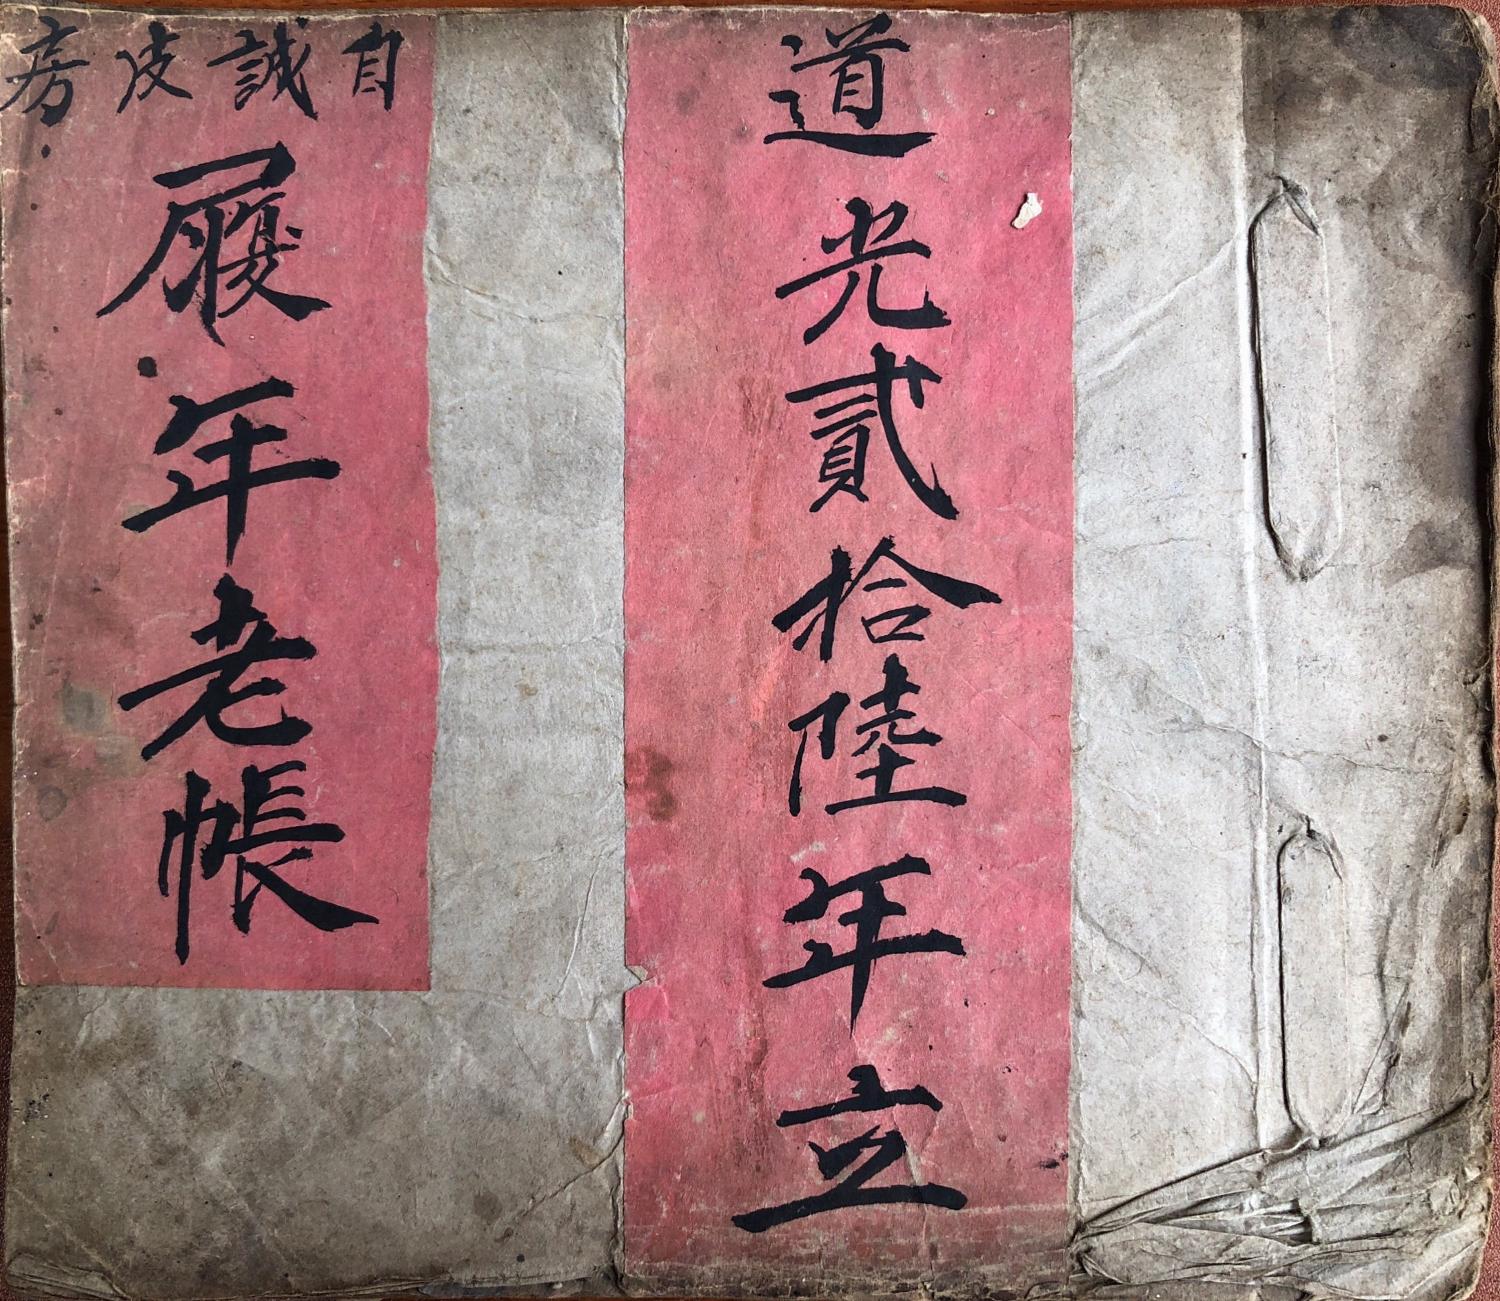 道光貳拾陸年立
自誠皮房
履年老帳